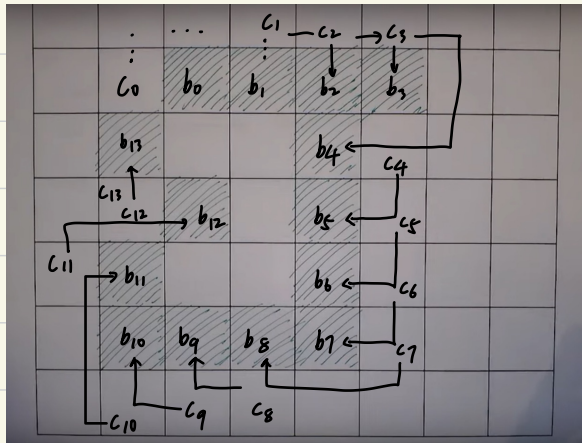 C1 C2 C3
C0 b0 b1 b2 b3
b13 b4 C4
C13 C12 b12 b5 C5
C11 b11 b6 C6
b10 b9 b8 b7 C7
C10 C9 C8